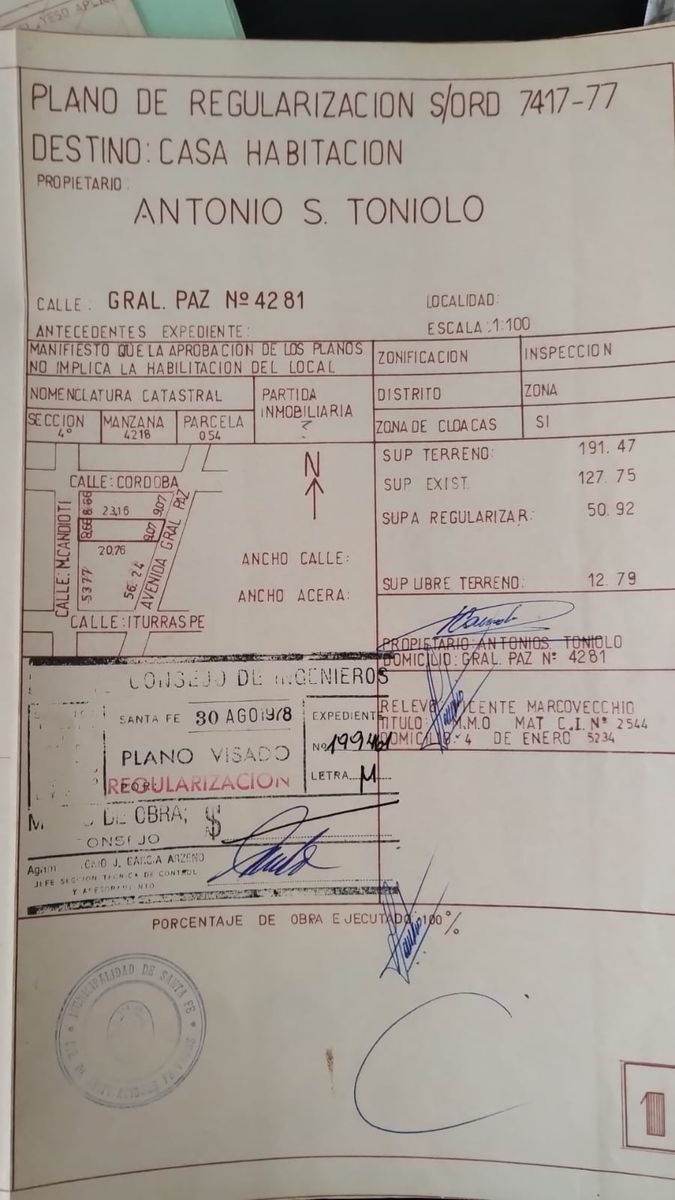 YESO APLIC
PLANO DE REGULARIZACION S/ORD 7417-77
DESTINO: CASA HABITACION
PROPIETARIO:
ANTONIO S. TONIOLO
CALLE: GRAL. PAZ Nº 4281
LOCALIDAD:
ANTECEDENTES EXPEDIENTE:
ESCALA: 1:100
MANIFIESTO QUE LA APROBACION DE LOS PLANOS
NO IMPLICA LA HABILITACION DEL LOCAL
ZONIFICACION
INSPECCION
NOMENCLATURA CATASTRAL
PARTIDA
INMOBILIARIA
?
DISTRITO
ZONA
SECCION
4º
MANZANA
4218
PARCELA
054
ZONA DE CLOACAS
SI
SUP TERRENO: 191.47
SUP EXIST. 127.75
SUP A REGULARIZAR: 50.92
SUP LIBRE TERRENO: 12.79
CALLE: CORDOBA
CALLE: M.CANDIOTI
8.66 8.66
23.16
9.07 9.07
20.76
53.77
56.24
AVENIDA GRAL PAZ
CALLE: ITURRASPE
N
ANCHO CALLE:
ANCHO ACERA:
PROPIETARIO: ANTONIO S. TONIOLO
DOMICILIO: GRAL. PAZ Nº 4281
RELEVO: VICENTE MARCOVECCHIO
TITULO: M.M.O MAT C.I. Nº 2544
DOMICILIO: 4 DE ENERO 5234
CONSEJO DE INGENIEROS
SANTA FE 30 AGO 1978
EXPEDIENTE
Nº 199461
PLANO VISADO
POR
REGULARIZACION
LETRA M
DE OBRA; $
ONSEJO
Agrim
J. GARCIA ARZENO
JEFE SECCION TECNICA DE CONTROL
Y ASESORAMIENTO
PORCENTAJE DE OBRA EJECUTADO: 100%
MUNICIPALIDAD DE SANTA FE
1